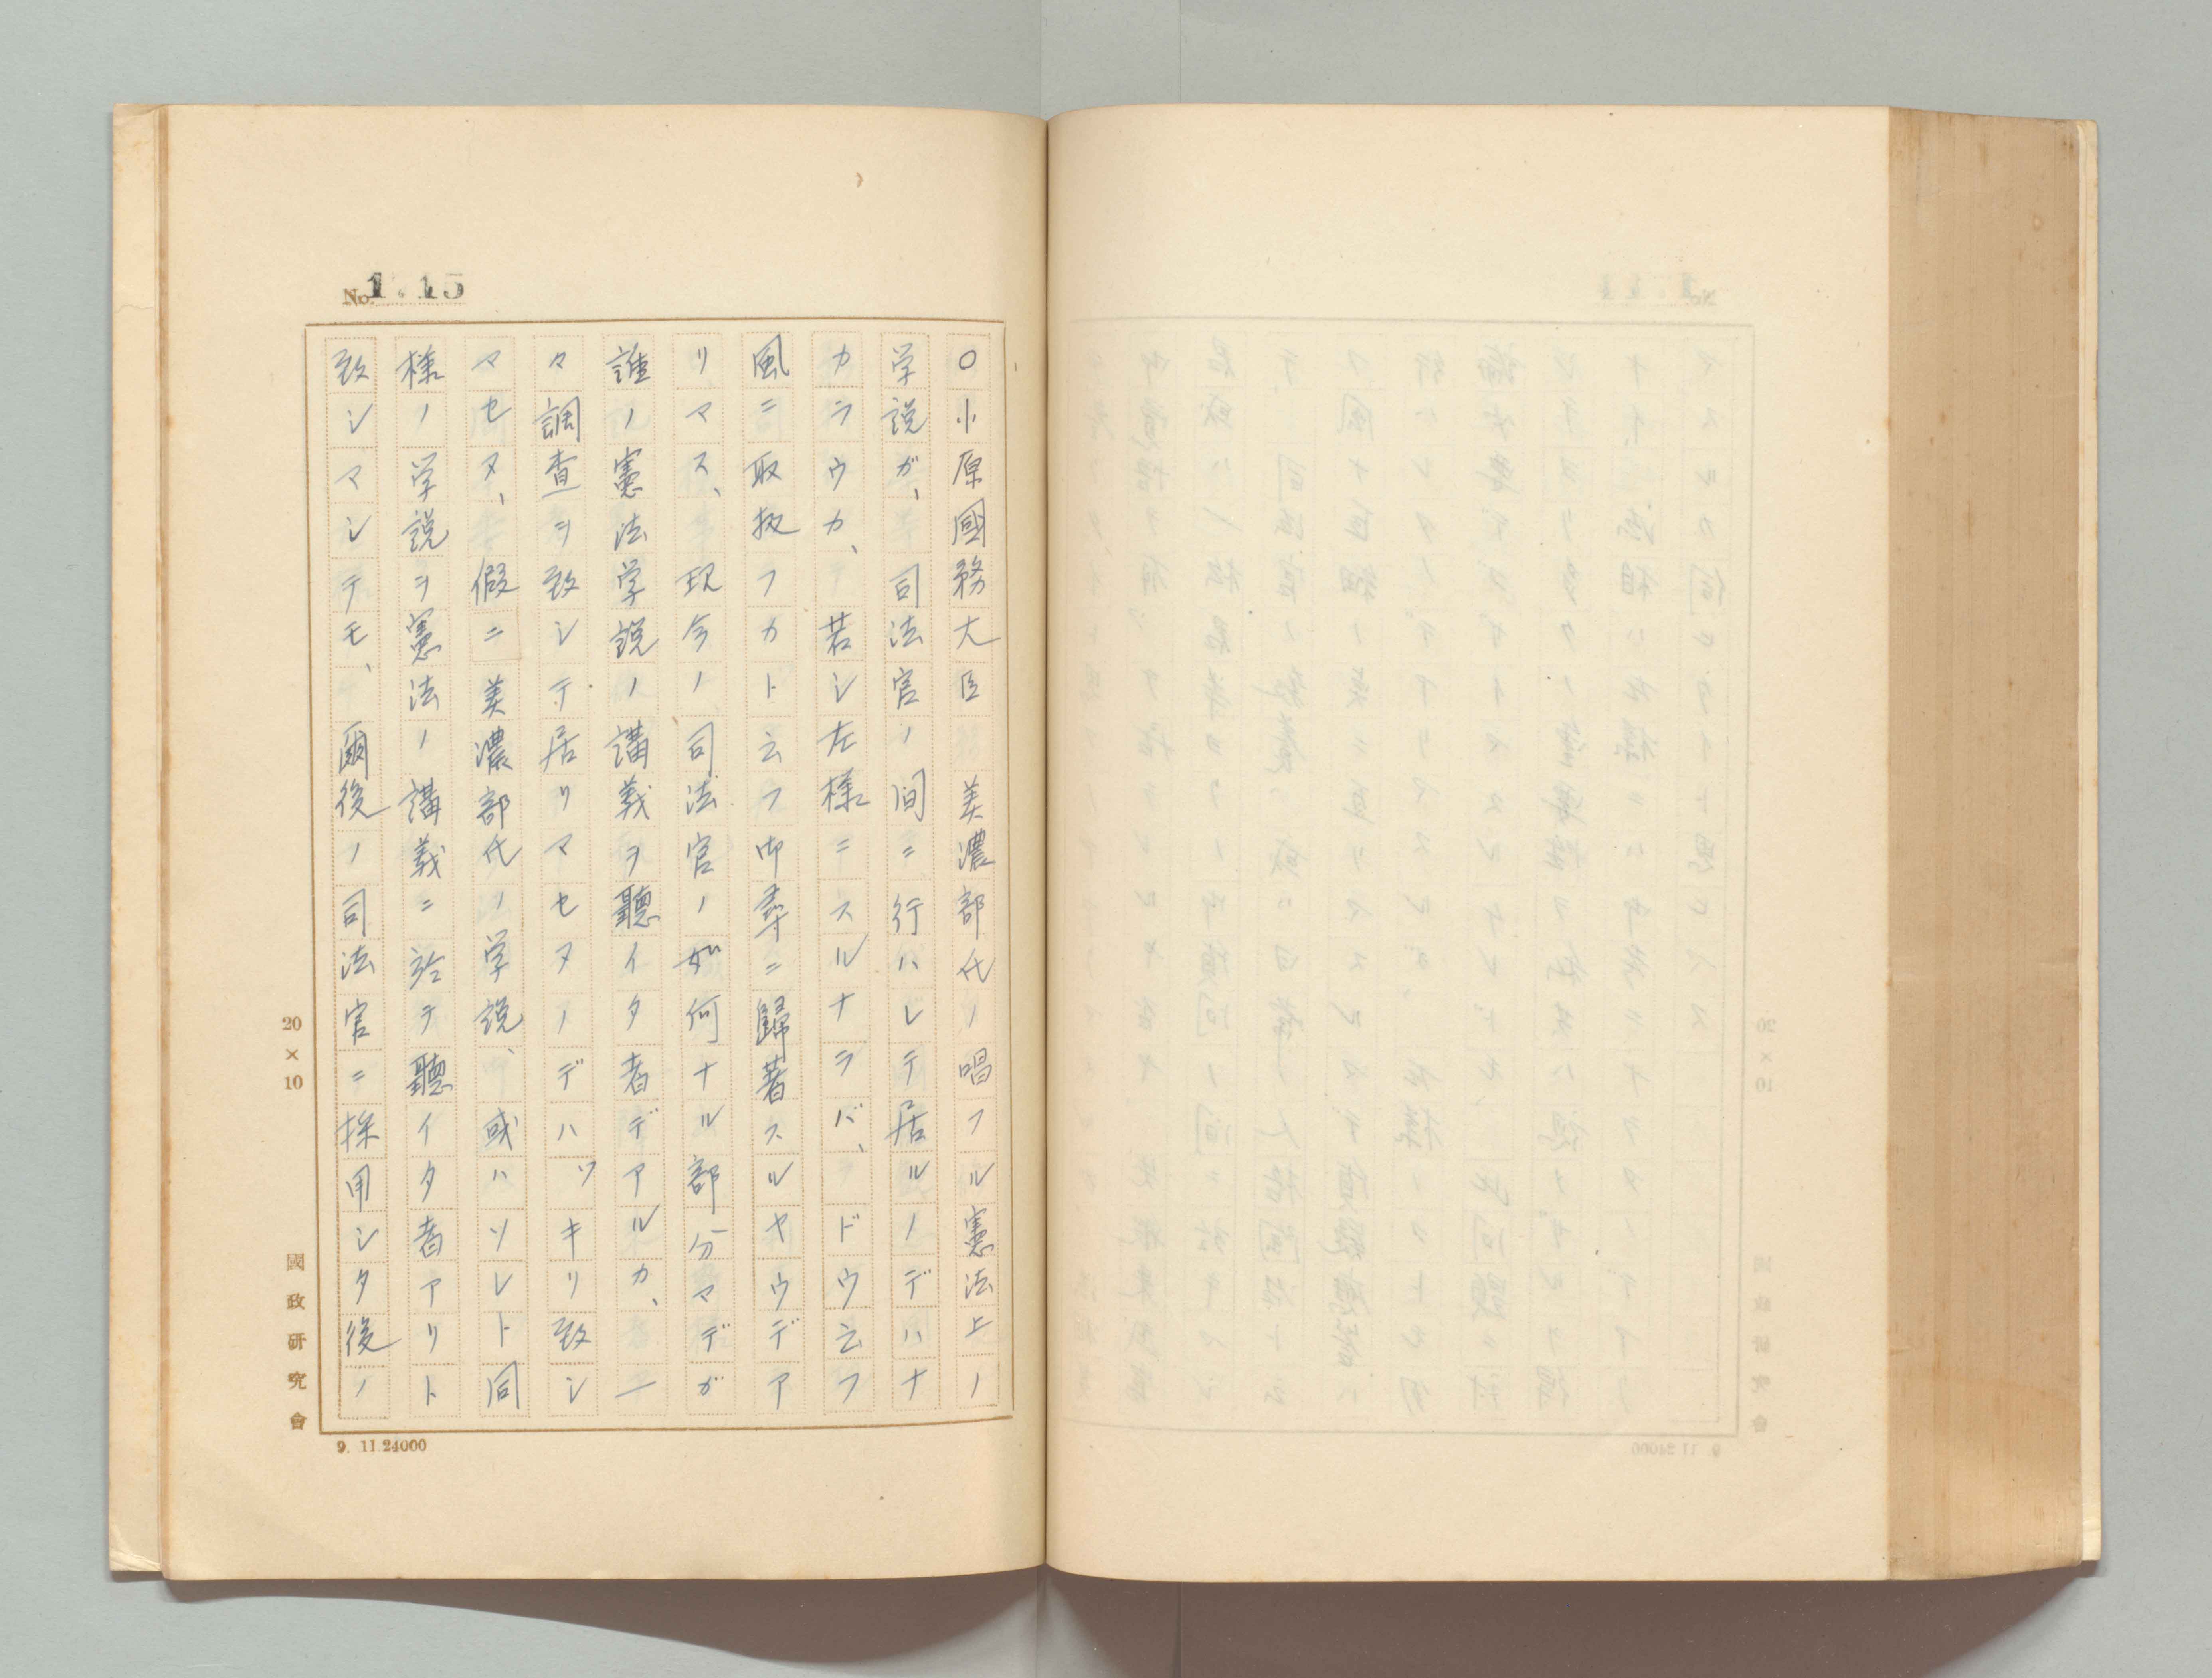 No. 1.15
〇小原國務大臣　美濃部氏ノ唱フル憲法上ノ
学説ガ、司法官ノ間ニ行ハレテ居ルノデハナ
カラウカ、若シ左様ニスルナラバ、ドウ云フ
風ニ取扱フカト云フ御尋ニ歸著スルヤウデア
リマス、現今ノ司法官ノ如何ナル部分マデガ
誰ノ憲法学説ノ講義ヲ聽イタ者デアルカ、一
々調査ヲ致シテ居リマセヌノデハツキリ致シ
マセヌ、假ニ美濃部氏ノ学説、或ハソレト同
様ノ学説ヲ憲法ノ講義ニ於テ聽イタ者アリト
致シマシテモ、爾後ノ司法官ニ採用シタ後ノ
20×10
國政研究會
9. 11.24000